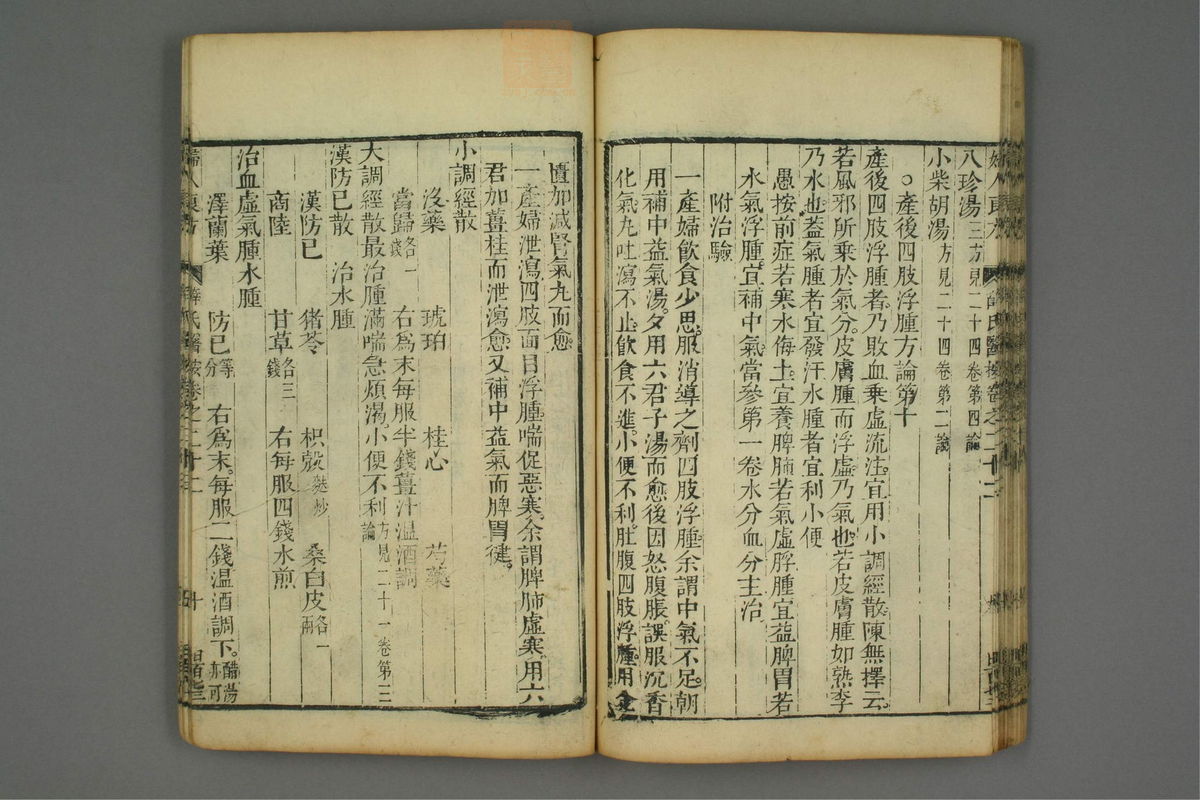 八珍湯三方見二十四卷第四論
小柴胡湯方見二十四卷第二論
○產後四肢浮腫方論第十
產後四肢浮腫者乃敗血乗虛流注宜用小調經散陳無擇云
若風邪所乗於氣分皮膚腫而浮虛乃氣也若皮膚腫如熟李
乃水也蓋氣腫者宜發汗水腫者宜利小便
愚按前症若寒水侮土宜養脾肺若氣虛脬腫宜益脾胃若
水氣浮腫宜補中氣當參第一卷水分血分主治
附治驗
一產婦飲食少思服消導之劑四肢浮腫余謂中氣不足朝
用補中益氣湯夕用六君子湯而愈後因怒腹脹誤服沉香
化氣丸吐瀉不止飲食不進小便不利肚腹四肢浮腫用金
匱加減腎氣丸而愈
一產婦泄瀉四肢面目浮腫喘促惡寒余謂脾肺虛寒用六
君加薑桂而泄瀉愈又補中益氣而脾胃健
小調經散
沒藥 琥珀 桂心 芍藥
當歸各一錢 右爲末每服半錢薑汁温酒調
大調經散最治腫滿喘急煩渴小便不利方見二十一卷第三論
漢防已散 治水腫
漢防已 猪苓 枳殼麩炒 桑白皮各一兩
商陸 甘草各三錢 右每服四錢水煎
治血虛氣腫水腫
澤蘭葉 防已等分 右爲末每服二錢温酒調下醋湯亦可